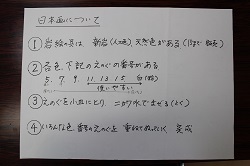 日本画について
① 岩絵の具は 新岩(人工的)、天然色がある
② 各色、下記のえのぐの番号がある
5. 7. 9. 11. 13. 15. 白(粉)
使いやすい
③ えのぐを小皿にとり ニカワ水でまぜる(よく)
④ いろんな色、番号のえのぐを 重ねてぬっていく 完成